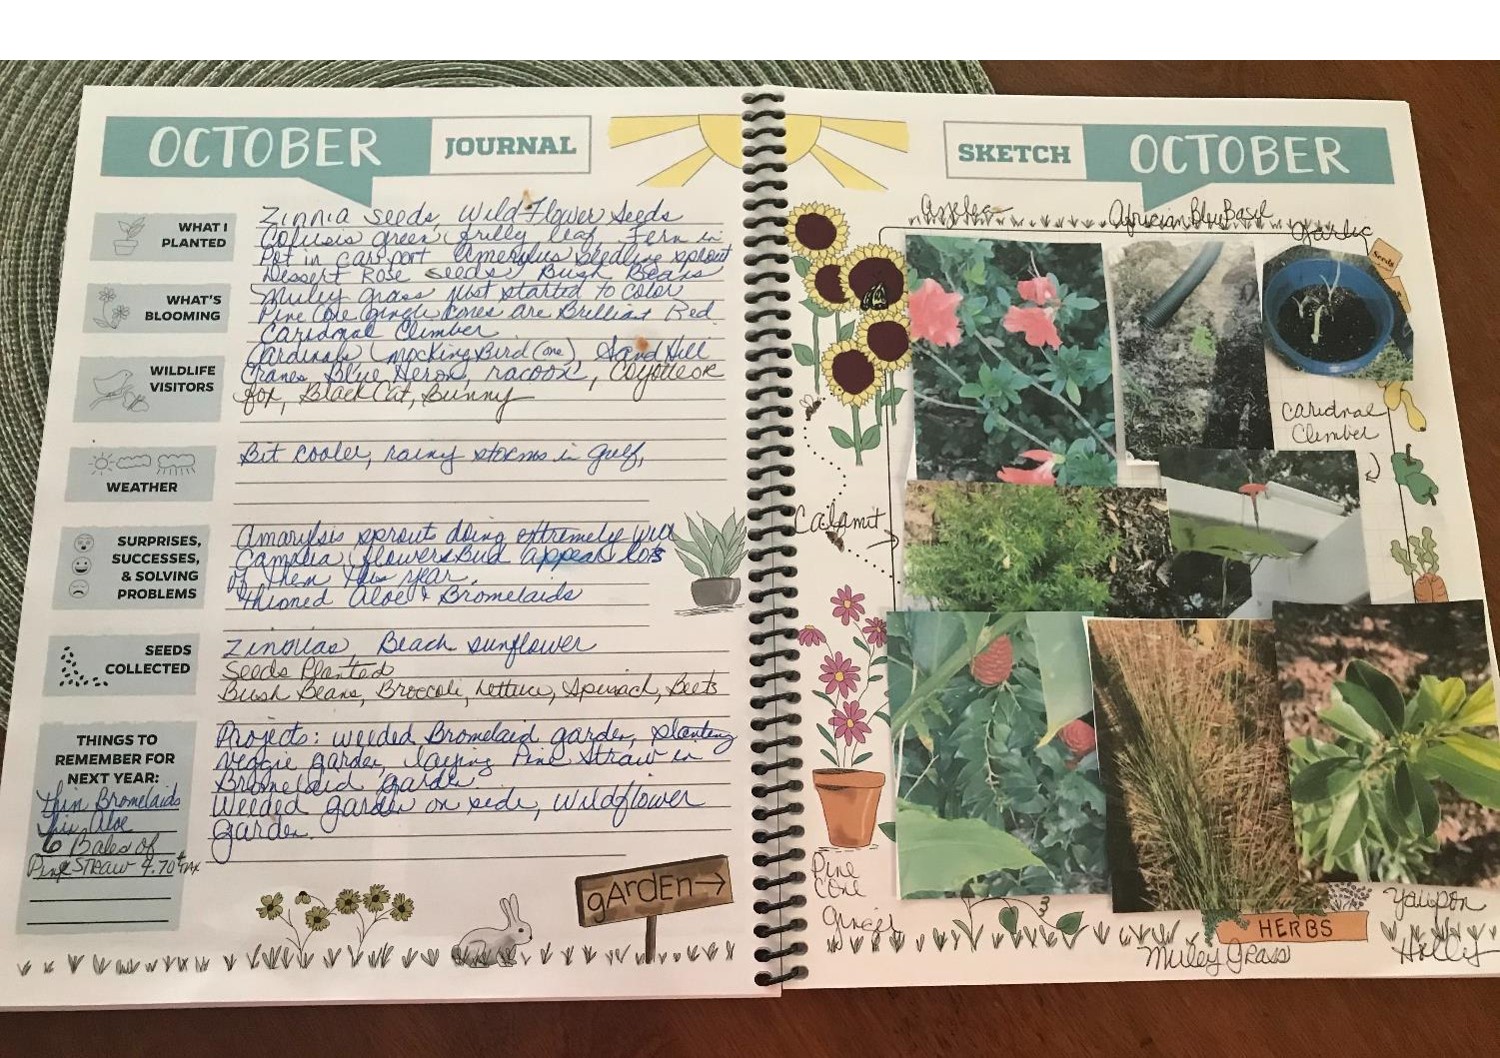 OCTOBER JOURNAL
WHAT I
PLANTED
Zinnia seeds, Wild Flower Seeds
green, frilly leaf, Fern in
Pot in carport Amerylus Seedling sprout
Dessert Rose seeds, Bush Beans
WHAT'S
BLOOMING
Muley grass just started to color
Pine Cone Ginger Cones are Brilliant Red
Caridnal Climber
WILDLIFE
VISITORS
Cardinals, Mocking Bird (one), Sand Hill
Cranes, Blue Heron, racoon, Coyotte or
fox, Black Cat, Bunny
WEATHER
Bit cooler, rainy storms in gulf,
SURPRISES,
SUCCESSES,
& SOLVING
PROBLEMS
sprouts doing extremely well
flowers Bud appear lots
of them this year.
Aloe & Bromelaids
SEEDS
COLLECTED
Zinnias, Beach sunflower
Seeds Planted
Bush Beans, Broccoli, Lettuce, Spinach, Beets
THINGS TO
REMEMBER FOR
NEXT YEAR:
thin Bromelaids
Aloe
6 Bales of
Pine Straw 4.70 + tax
Projects: weeded Bromelaid garden, planting
veggie garden, laying Pine Straw in
Bromelaid garden
Weeded garden on side, Wildflower
garden.
gArdEn
SKETCH OCTOBER
Azalea
African Blue Basil
Garlic
Seeds
Caridnal
Climber
Calamit
Pine
Cone
Ginger
HERBS
Muley Grass
Yaupon
Holly